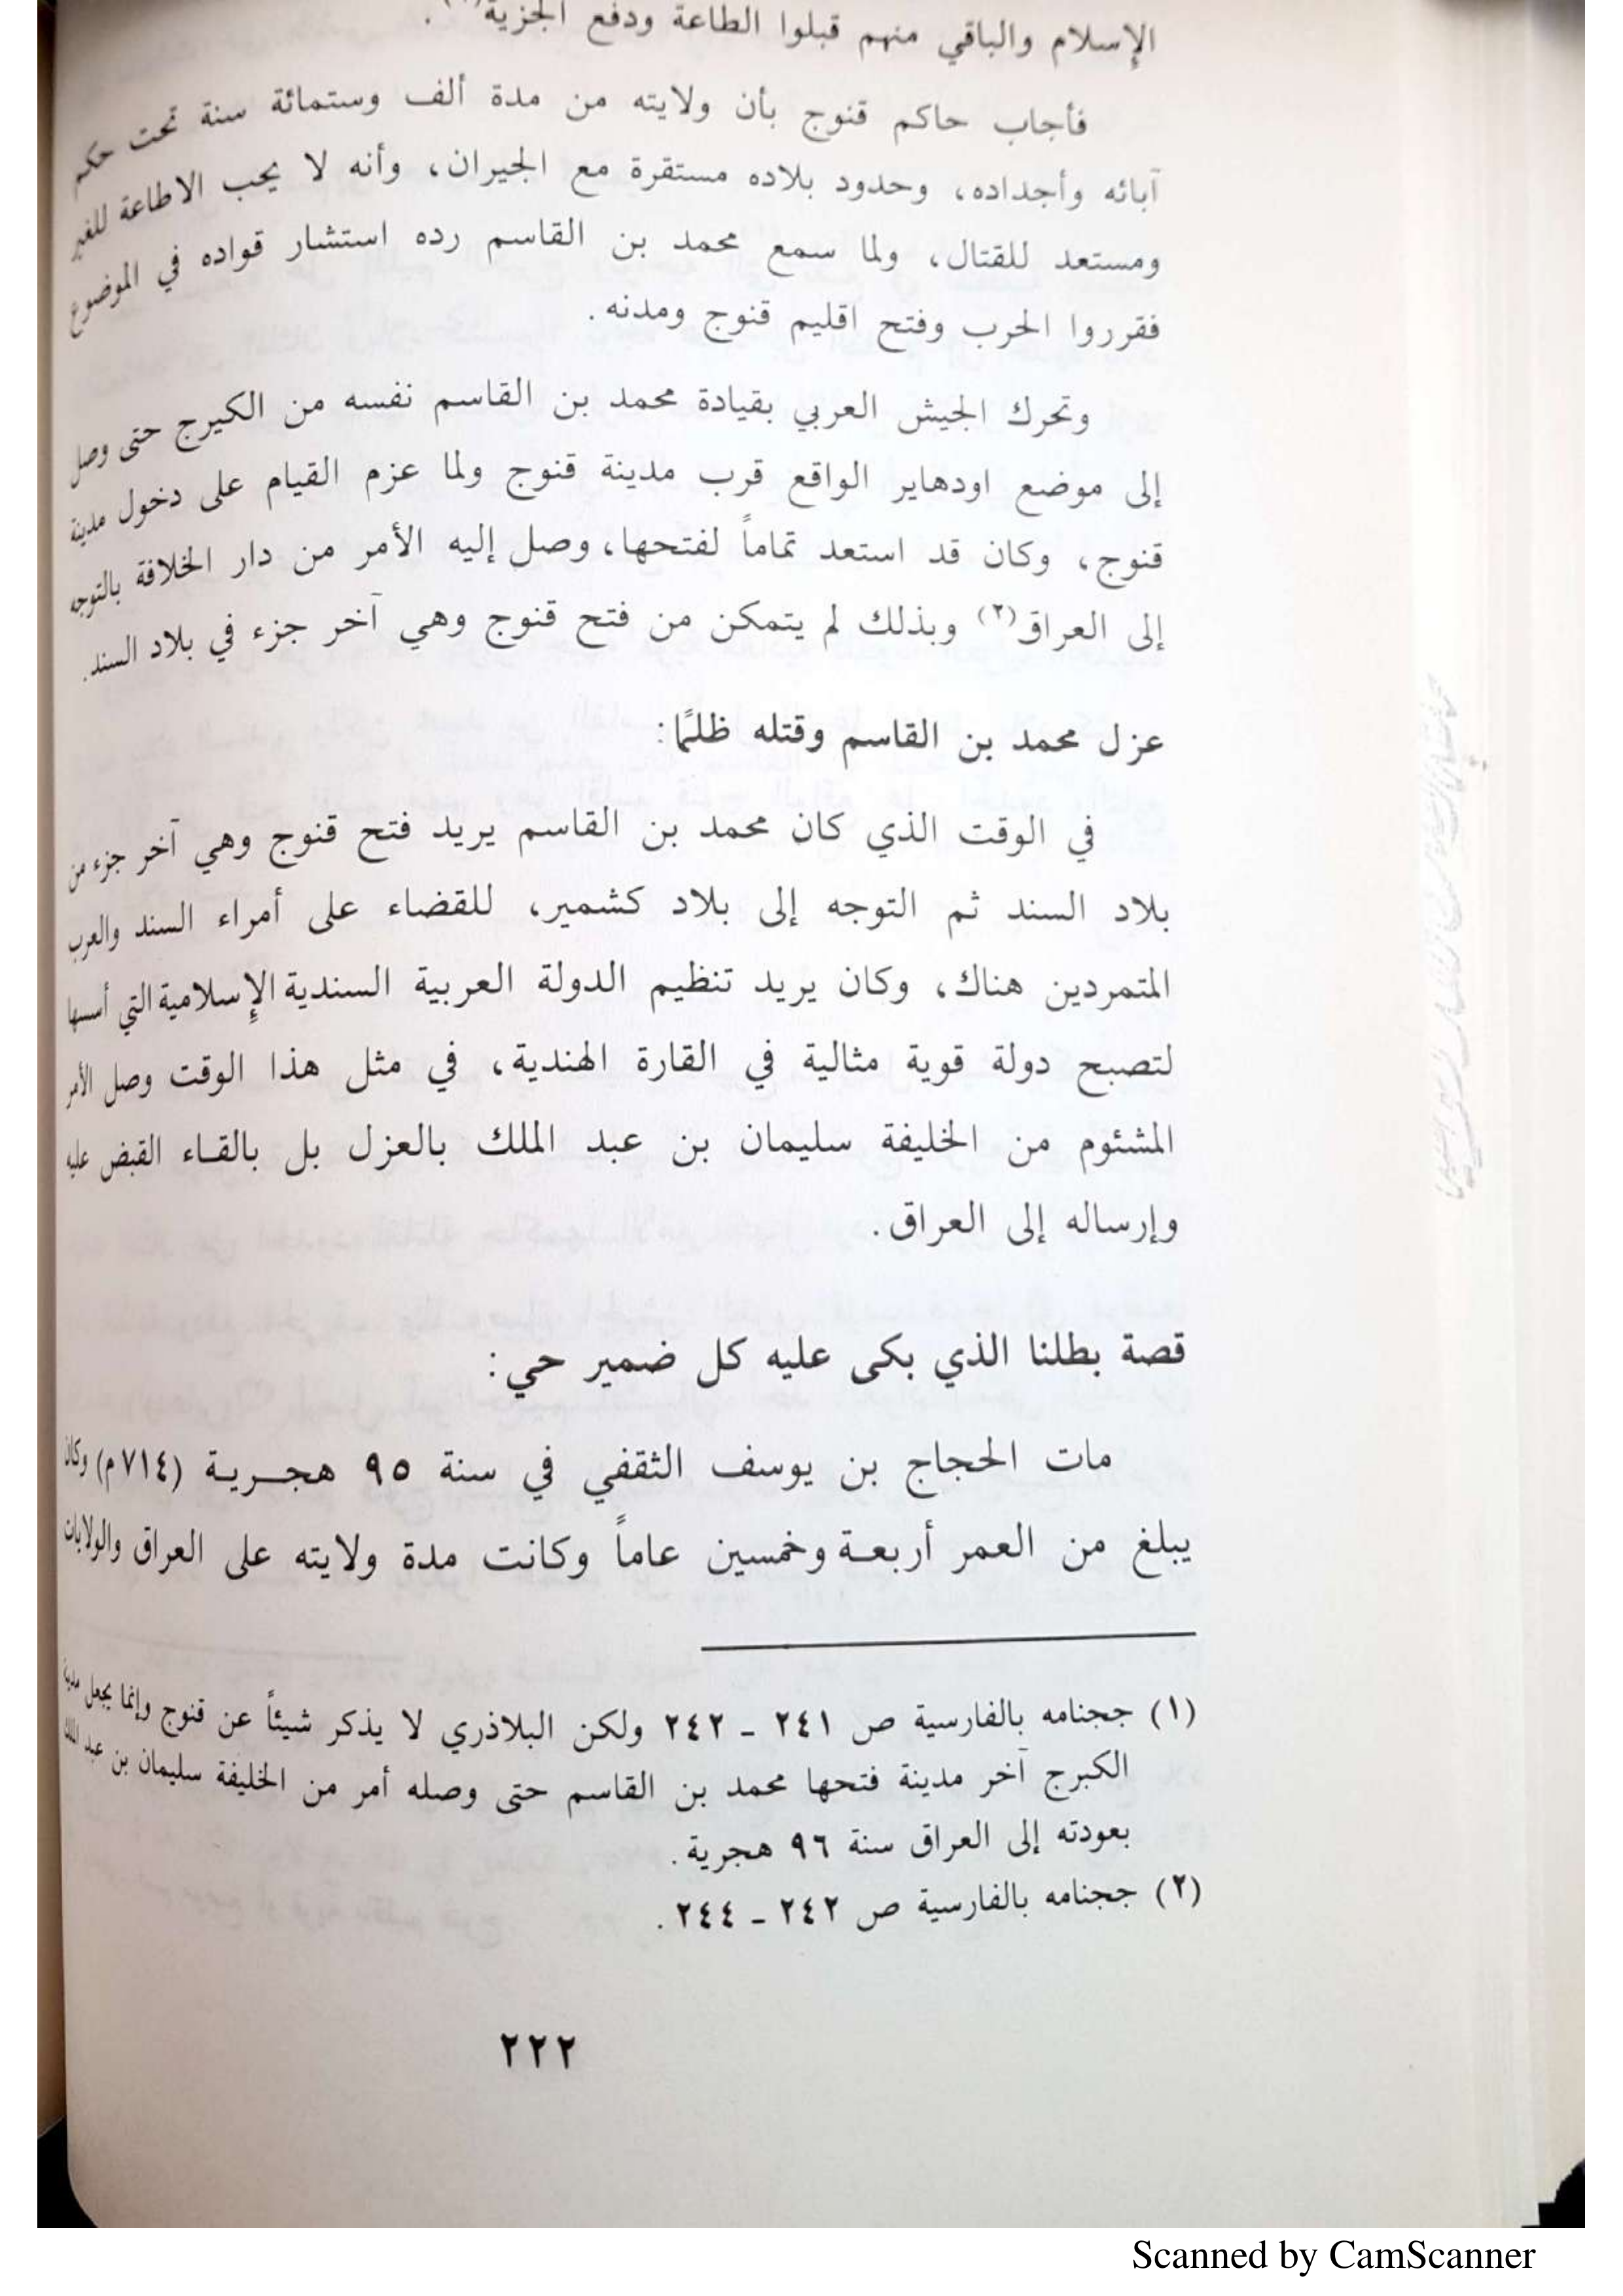 الإسلام والباقي منهم قبلوا الطاعة ودفع الجزية(١).
فأجاب حاكم قنوج بأن ولايته من مدة ألف وستمائة سنة تحت حكم
آبائه وأجداده، وحدود بلاده مستقرة مع الجيران، وأنه لا يحب الاطاعة للغير
ومستعد للقتال، ولما سمع محمد بن القاسم رده استشار قواده في الموضوع
فقرروا الحرب وفتح اقليم قنوج ومدنه.
وتحرك الجيش العربي بقيادة محمد بن القاسم نفسه من الكيرج حتى وصل
إلى موضع اودهاير الواقع قرب مدينة قنوج ولما عزم القيام على دخول مدينة
قنوج، وكان قد استعد تماماً لفتحها، وصل إليه الأمر من دار الخلافة بالتوجه
إلى العراق(٢) وبذلك لم يتمكن من فتح قنوج وهي آخر جزء في بلاد السند.
عزل محمد بن القاسم وقتله ظلمًا:
في الوقت الذي كان محمد بن القاسم يريد فتح قنوج وهي آخر جزء من
بلاد السند ثم التوجه إلى بلاد كشمير، للقضاء على أمراء السند والعرب
المتمردين هناك، وكان يريد تنظيم الدولة العربية السندية الإسلامية التي أسسها
لتصبح دولة قوية مثالية في القارة الهندية، في مثل هذا الوقت وصل الأمر
المشئوم من الخليفة سليمان بن عبد الملك بالعزل بل بالقاء القبض عليه
وإرساله إلى العراق.
قصة بطلنا الذي بكى عليه كل ضمير حي:
مات الحجاج بن يوسف الثقفي في سنة ٩٥ هجرية (٧١٤ م) وكان
يبلغ من العمر أربعة وخمسين عاماً وكانت مدة ولايته على العراق والولايات
(١) ججنامه بالفارسية ص ٢٤١ - ٢٤٢ ولكن البلاذري لا يذكر شيئاً عن قنوج وإنما يجعل مدينة
الكبرج آخر مدينة فتحها محمد بن القاسم حتى وصله أمر من الخليفة سليمان بن عبد الملك
بعودته إلى العراق سنة ٩٦ هجرية.
(٢) ججنامه بالفارسية ص ٢٤٢ - ٢٤٤.
٢٢٢
Scanned by CamScanner